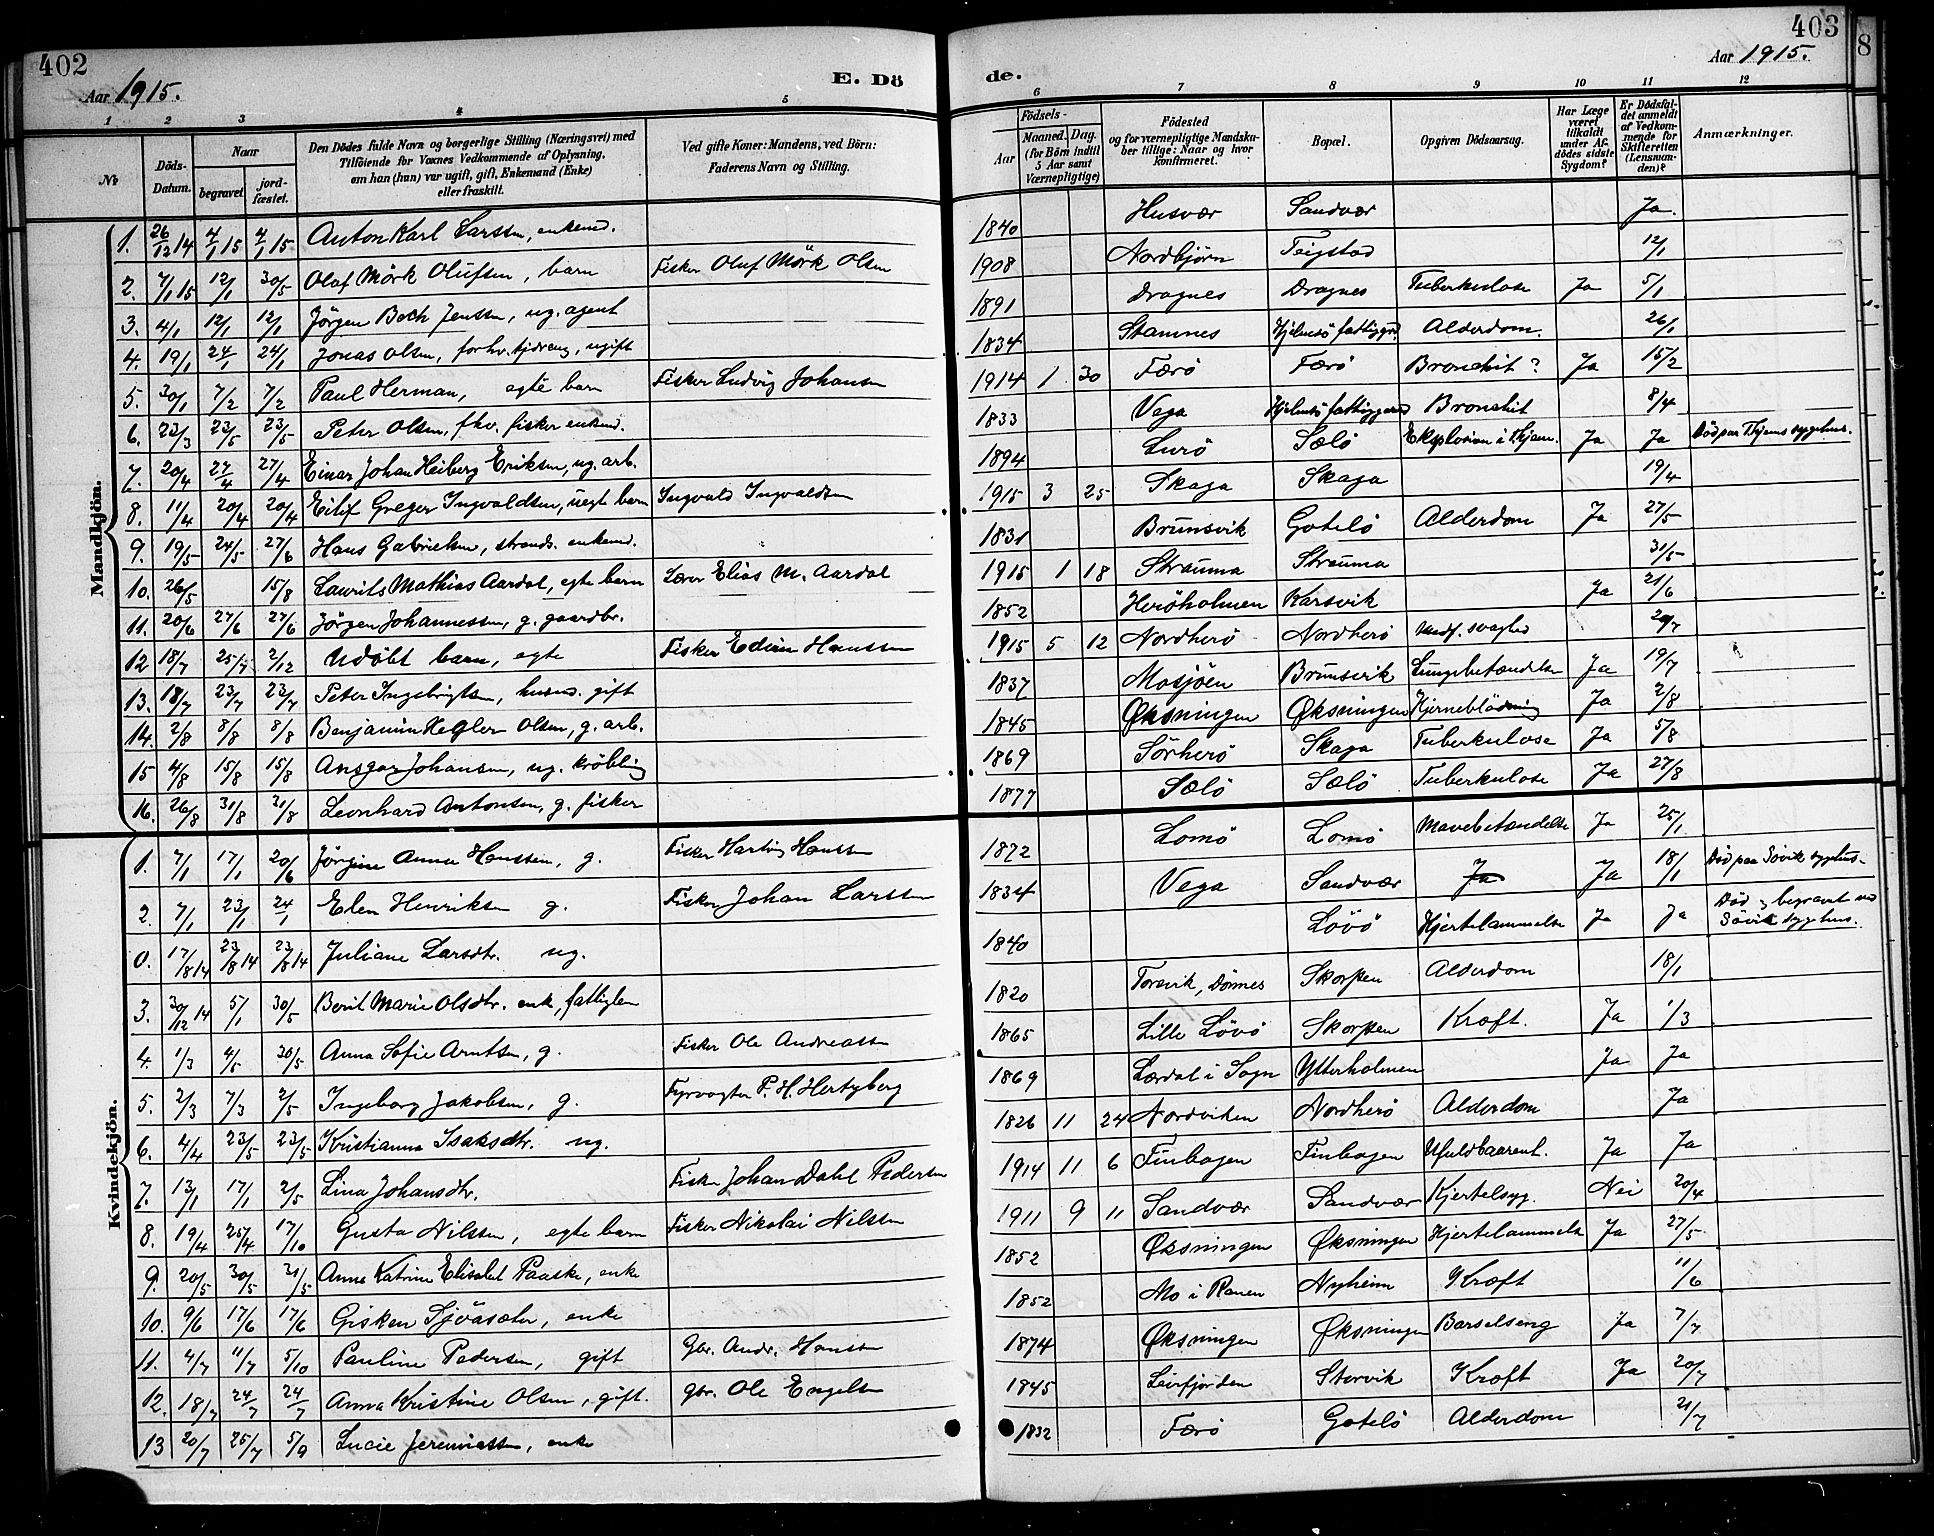 402
Aar 1915.
E. Dö
1 2 3 4 5
№
Döds-Datum.
Naar
begravet
jordfæstet.
Den Dödes fulde Navn og borgerlige Stilling (Næringsvei) med
Tilföiende for Voxnes Vedkommende af Oplysning,
om han (hun) var ugift, gift, Enkemand (Enke)
eller fraskilt.
Ved gifte Koner: Mandens, ved Börn:
Faderens Navn og Stilling.
Mandkjön.
1. 26/12 14 4/1 15 4/1 15 Anton Karl Larssen, enkemd.
2. 7/1 15 12/1 30/5 Olaf Mörk Olufsen, barn Fisker Oluf Mörk Olsen
3. 4/1 12/1 12/1 Jörgen Boch Jenssen, ug. agent
4. 19/1 24/1 24/1 Jonas Olsen, forhv. tjdreng, ugift
5. 30/1 7/2 7/2 Paul Herman, egte barn Fisker Ludvig Johansen
6. 23/3 23/5 23/5 Peter Olsen, fhv. fisker enkemd.
7. 20/4 27/4 27/4 Einar Johan Heiberg Eriksen, ug. arb.
8. 11/4 20/4 20/4 Eilif Greger Ingvaldsen, uegt barn Ingvald Ingvaldsen
9. 19/5 24/5 27/6 Hans Gabrielsen, strands. enkemd.
10. 26/5 15/8 Laurits Mathias Aardal, egte barn Lærer Elias M. Aardal
11. 20/6 27/6 27/6 Jörgen Johannessen, g. gaardbr.
12 18/7 25/7 2/12 Udöbt barn, egte Fisker Edvin Hanssen
13. 18/7 23/7 23/7 Peter Ingebrigtsen, husmd. gift
14. 2/8 8/8 8/8 Benjamin Kegler Olsen, g. arb.
15 4/8 15/8 15/8 Ansgar Johansen, ug. kröbling
16. 26/8 31/8 31/8 Leonhard Antonsen, g. fisker
Kvindekjön.
1. 7/1 17/1 20/6 Jörgine Anna Hanssen, g. Fisker Hartvig Hanssen
2. 7/1 23/1 24/1 Elen Henriksen g. Fisker Johan Larssen
0. 17/8 14 23/8 14 23/8 14 Juliane Larsdtr. ug.
3. 30/12 14 5/1 30/5 Berit Marie Olsdtr. enke, fattiglem
4. 1/3 4/5 30/5 Anna Sofie Arntsen, g. Fisker Ole Andreassen
5. 2/3 7/3 2/5 Ingeborg Jakobsen, g. Fyrvogter P. H. Hertzberg
6. 4/4 23/5 23/5 Kristianna Isaksdtr. ug.
7. 13/1 17/1 2/5 Lina Johansdtr. Fisker Johan Dahl Pedersen
8. 19/4 25/4 17/10 Gusta Nilssen, egte barn Fisker Nikolai Nilssen
9. 20/5 30/5 31/5 Anna Katrine Elisabet Paaske, enke
10. 9/6 17/6 17/6 Gisken Sjöåsæter, enke
11. 4/7 11/7 5/10 Pauline Pedersen, gift Gbr. Andr. Hanssen
12. 18/7 24/7 24/7 Anna Kristine Olsen, gift. gbr. Ole Engelsen
13 20/7 25/7 5/9 Lucie Jeremiassen, enke
403
8
Aar 1915.
de.
6 7 8 9 10 11 12
Födsels-
Aar
Maaned. Dag.
(for Börn indtil
5 Aar samt
Værnepligtige)
Födested
og for værnepligtige Mandskaber tillige: Naar og hvor
konfirmeret.
Bopæl.
Opgiven Dödsaarsag.
Har Læge
været
tilkaldt
under Afdödes sidste
Sygdom?
Er Dödsfaldet anmeldt
af Vedkommende for
Skifteretten
(Lensmanden)?
Anmærkninger.
1840 Husvær Sandvær Ja.
1908 Nordbjörn Teigstad 12/1
1891 Dragnes Dragnes Tuberkulose Ja 5/1
1834 Stamnes Hjelmsö fattiggrd. Alderdom. 26/1
1914 1 30 Færö Færö Bronchit? Ja 15/2
1833 Vega Hjelmsö fattiggaard Bronchit 8/4
1894 Lurö Sælö Eksplosion i Thjem. Ja Ja Död paa Thjems sygehus.
1915 3 25 Skaga Skaga 19/4
1831 Brunsvik Gotelö Alderdom Ja 27/5
1915 1 18 Strauma Strauma 31/5
1852 Heröholmen Karsvik Ja 21/6
1915 5 12 Nordherö Nordherö Medf. svaghed 20/7
1837 Mosjöen Brunsvik Lungebetændelse Ja 19/7
1845 Øksningen Øksningen Hjerneblödning Ja 2/8
1869 Sörherö Skaga Tuberkulose Ja 5/8
1877 Sælö Sælö Tuberkulose Ja 27/8
1872 Lomö Lomö Mavebetændelse Ja 25/1
1834 Vega Sandvær Ja Ja 18/1 Död paa Sövik sygehus.
1840 Lövö Hjertelammelse Ja Ja Död og begravet ved Sövik sygehus.
1820 Torsvik, Dönnes Skorpen Alderdom 18/1
1865 Lille Lövö Skorpen Kræft. Ja 1/3
1869 Lærdal i Sogn Ytterholmen Ja Ja
1826 11 24 Nordviken Nordherö Alderdom Ja
1914 11 6 Finbogen Finbogen Ufuldbaarent. Ja Ja
1911 9 11 Sandvær Sandvær Kjertelsyg. Nei 20/4
1852 Øksningen Øksningen Hjertelammelse Ja 27/5
1852 Mo i Ranen Nyheim Kræft 11/6
1874 Øksningen Øksningen Barselseng Ja 7/7
1845 Leirfjorden Storvik Kræft Ja 20/7
1832 Færö Gotelö Alderdom 21/7